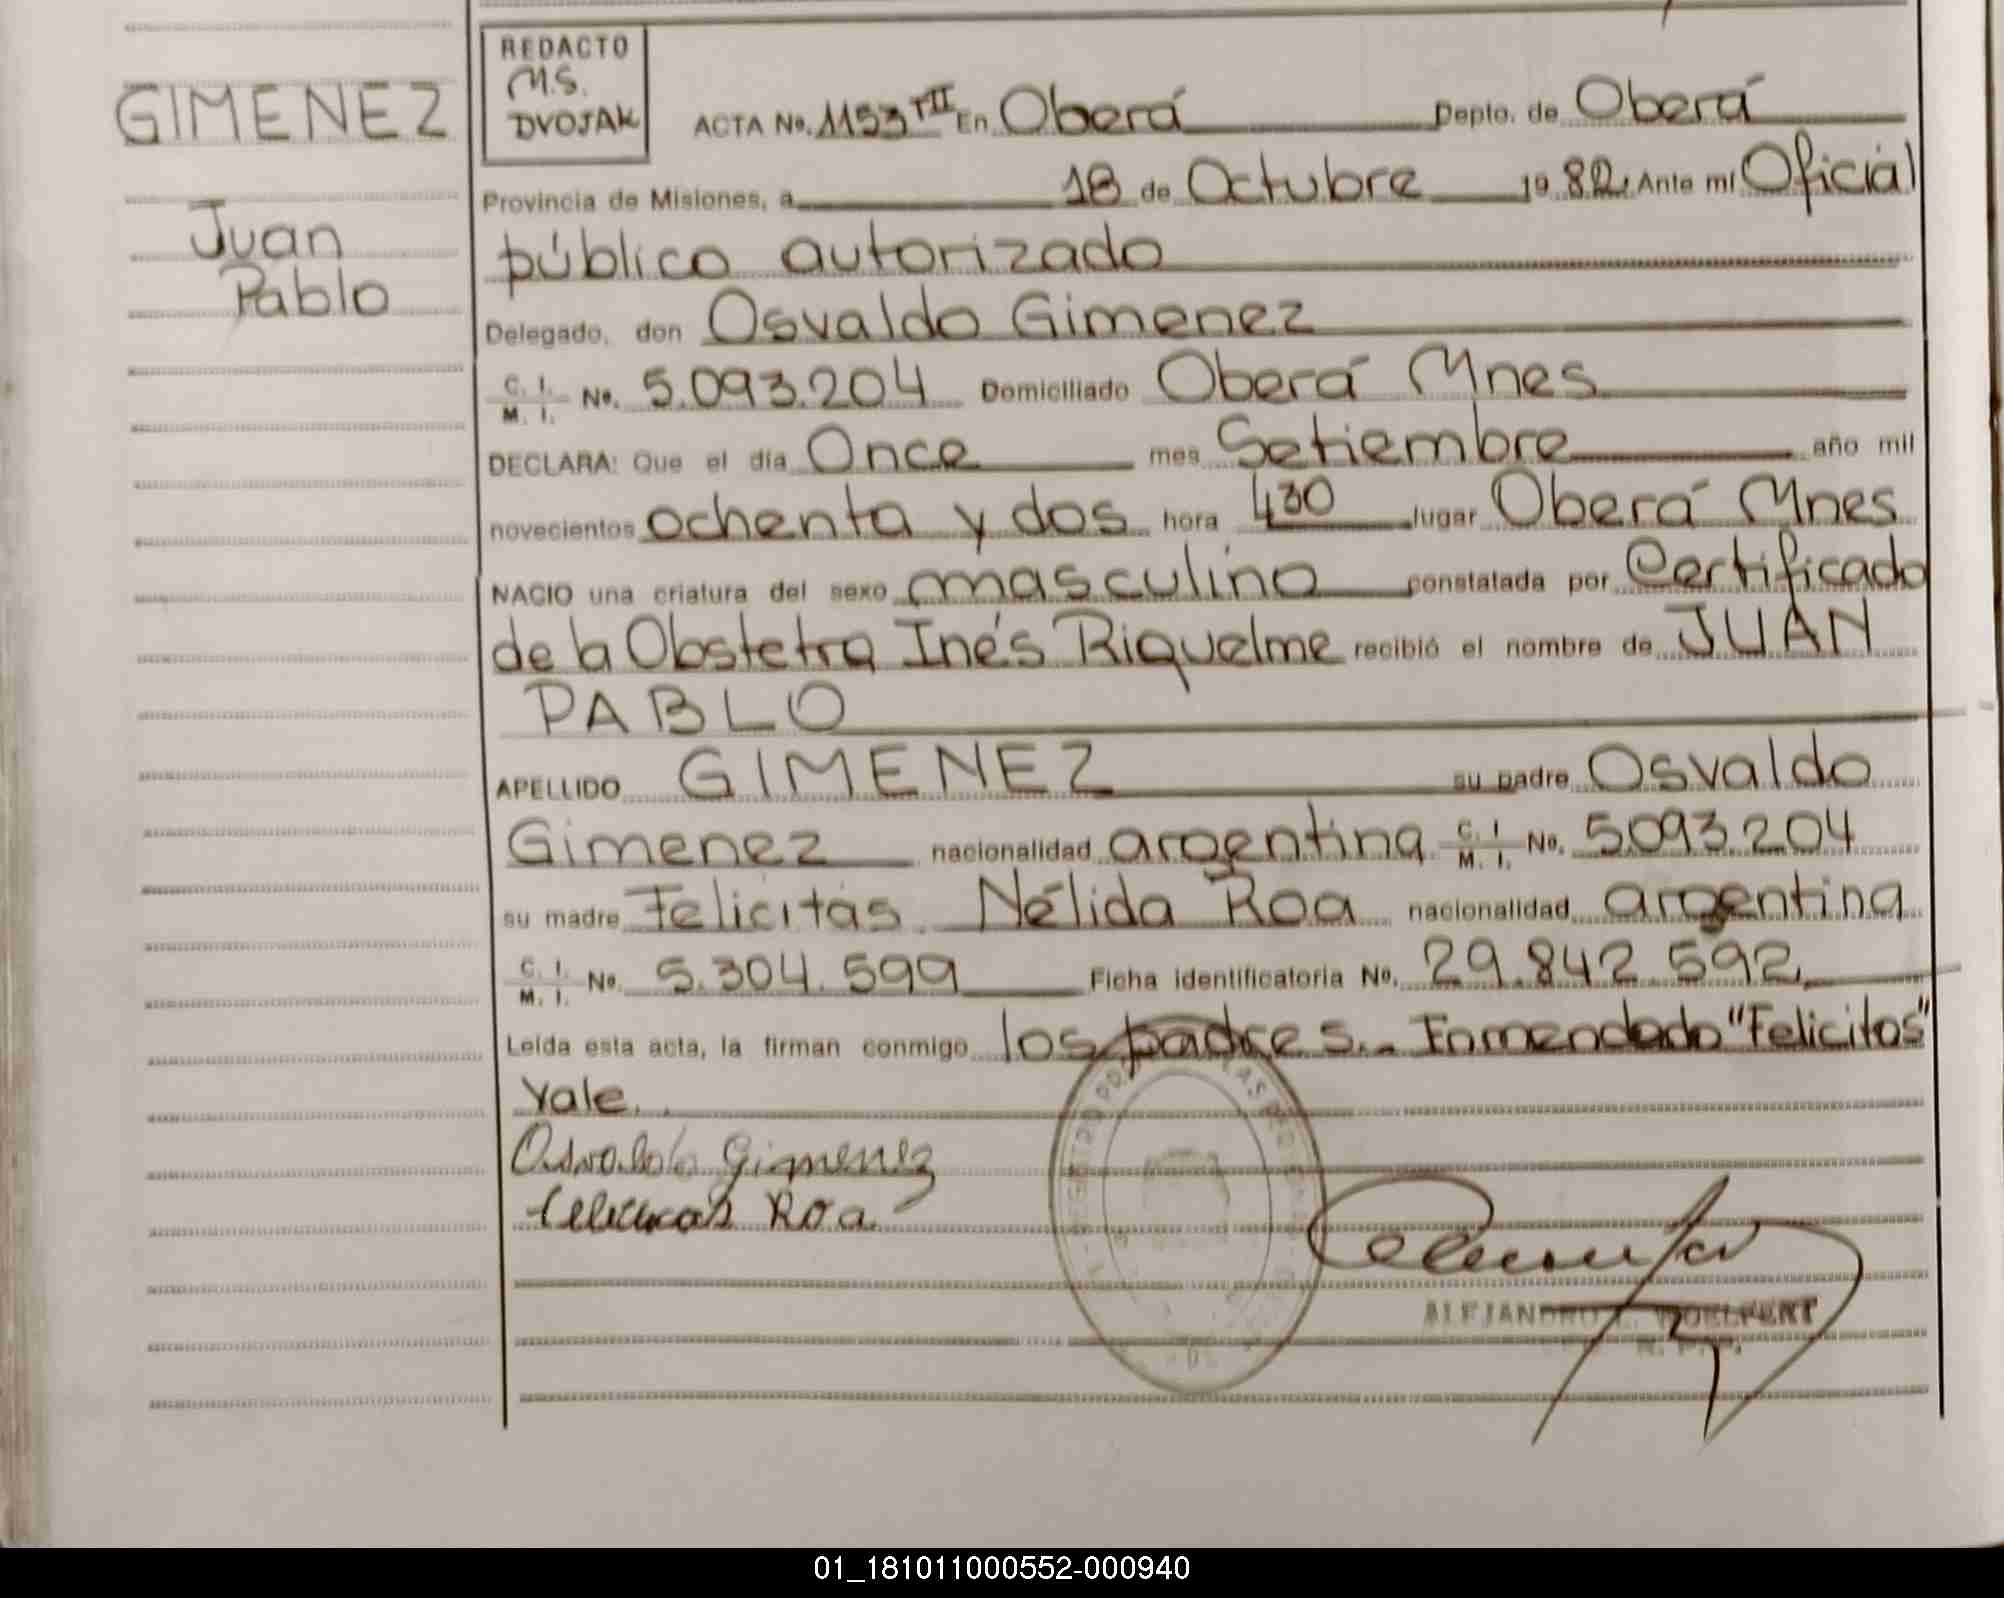 GIMENEZ
Juan
Pablo
REDACTO
M.S.
DVOJAK
ACTA No. 1153 TII En Oberá Depto. de Oberá
Provincia de Misiones, a 18 de Octubre 19 82. Ante mi Oficial
público autorizado
Delegado, don Osvaldo Gimenez
C. I. M. I. No. 5.093.204 Domiciliado Oberá Mnes
DECLARA: Que el día Once mes Setiembre año mil
novecientos ochenta y dos hora 430 lugar Oberá Mnes
NACIO una criatura del sexo masculino constatada por Certificado
de la Obstetra Inés Riquelme recibió el nombre de JUAN
PABLO
APELLIDO GIMENEZ su padre Osvaldo
Gimenez nacionalidad argentina C. I. M. I. No. 5.093.204
su madre Felicitas Nélida Roa nacionalidad argentina
C. I. M. I. No. 5.304.599 Ficha identificatoria No. 29.842.592,
Leída esta acta, la firman conmigo los padres.- Enmendado "Felicitas"
Vale.
Osvaldo Gimenez
Felicitas Roa
ALEJANDRO
01_181011000552-000940